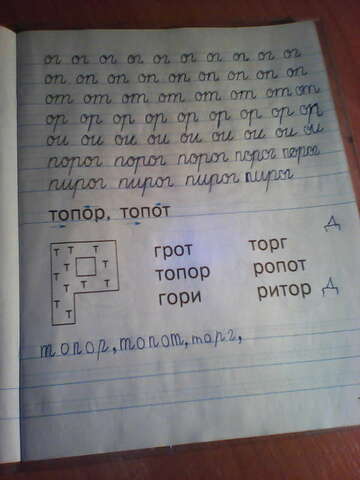 ог ог ог ог ог ог ог ог ог ог
оп оп оп оп оп оп оп оп оп оп
от от от от от от от от
ор ор ор ор ор ор ор ор ор
ои ои ои ои ои ои ои ои ои
порог порог порог порог порог
пирог пирог пирог пирог
топо́р, то́пот
Д
Т Т Т
Т Т
Т Т Т
Т
Т
грот торг
топор ропот
гори ритор Д
топор, топот, торг,